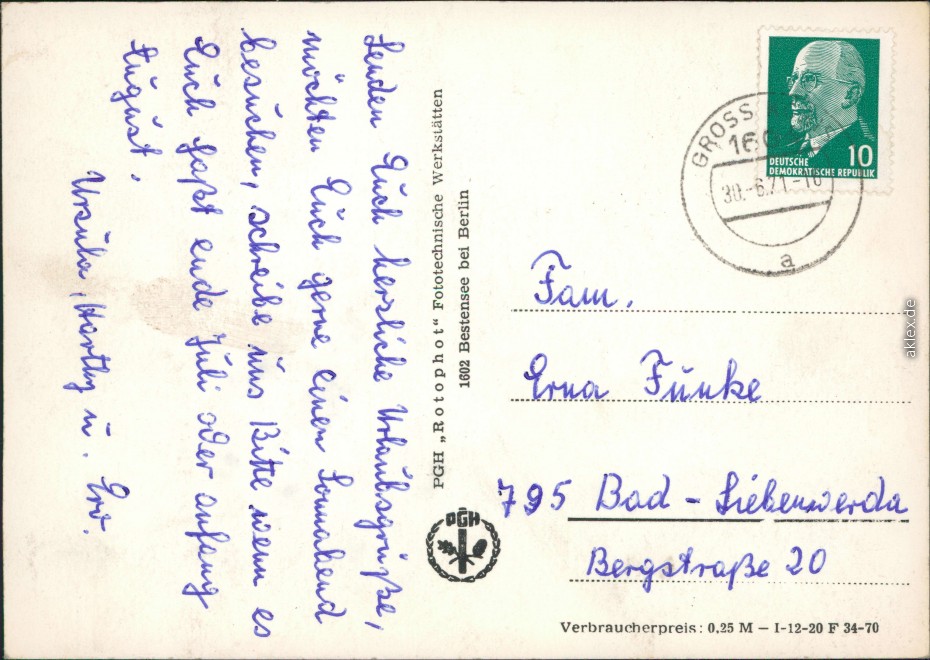 Senden Euch herzliche Urlaubsgrüße,
möchten Euch gerne einen Sonnabend
besuchen, schreibe uns Bitte wenn es
Euch paßt ende Juli oder anfang
August.
Ursula, u. Erw.
PGH „Rotophot“ Fototechnische Werkstätten
1602 Bestensee bei Berlin
PGH
GROSS
160
30.-6.71-10
a
10
DEUTSCHE
DEMOKRATISCHE REPUBLIK
Fam.
Erna Funke
795 Bad-Liebenwerda
Bergstraße 20
Verbraucherpreis: 0,25 M — I-12-20 F 34-70
aklex.de